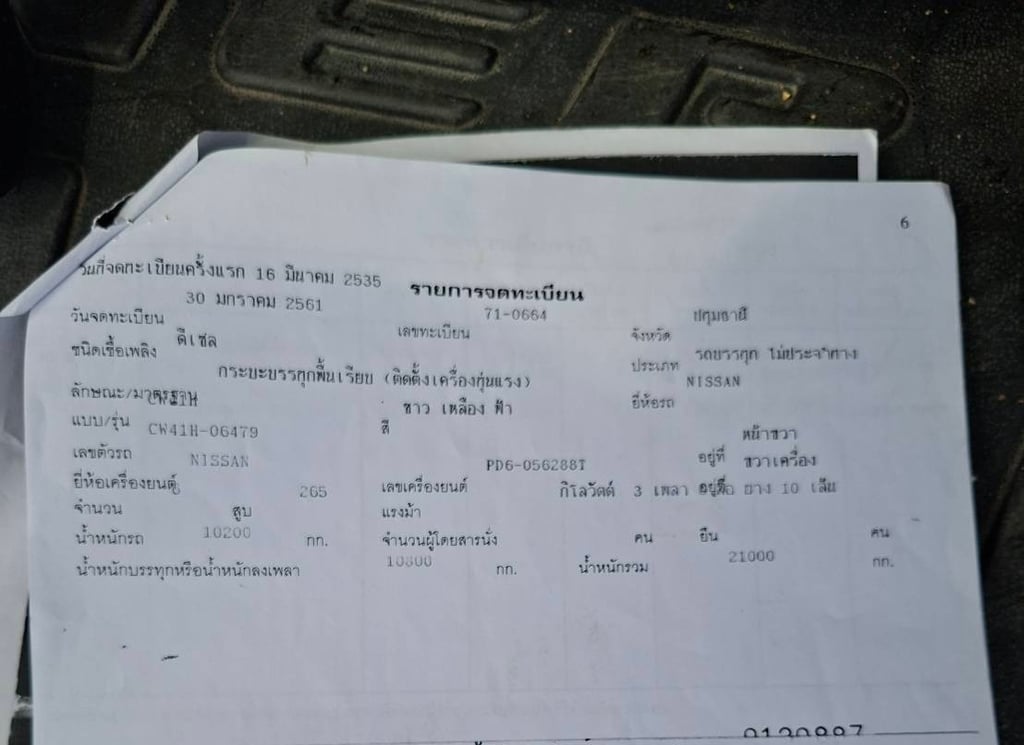 6
วันที่จดทะเบียนครั้งแรก 16 มีนาคม 2535
รายการจดทะเบียน
30 มกราคม 2561 71-0664 ปทุมธานี
วันจดทะเบียน เลขทะเบียน จังหวัด
ดีเซล รถบรรทุก ไม่ประจำทาง
ชนิดเชื้อเพลิง ประเภท
กระบะบรรทุกพื้นเรียบ (ติดตั้งเครื่องทุ่นแรง) NISSAN
ลักษณะ/มาตรฐาน ยี่ห้อรถ
CW41H ขาว เหลือง ฟ้า
แบบ/รุ่น สี
CW41H-06479 หน้าขวา
เลขตัวรถ อยู่ที่
NISSAN PD6-056288T ขวาเครื่อง
ยี่ห้อเครื่องยนต์ เลขเครื่องยนต์ อยู่ที่
265 กิโลวัตต์ 3 เพลา ล้อ ยาง 10 เส้น
จำนวน สูบ แรงม้า
10200
น้ำหนักรถ กก. จำนวนผู้โดยสารนั่ง คน ยืน คน
10800 21000
น้ำหนักบรรทุกหรือน้ำหนักลงเพลา กก. น้ำหนักรวม กก.